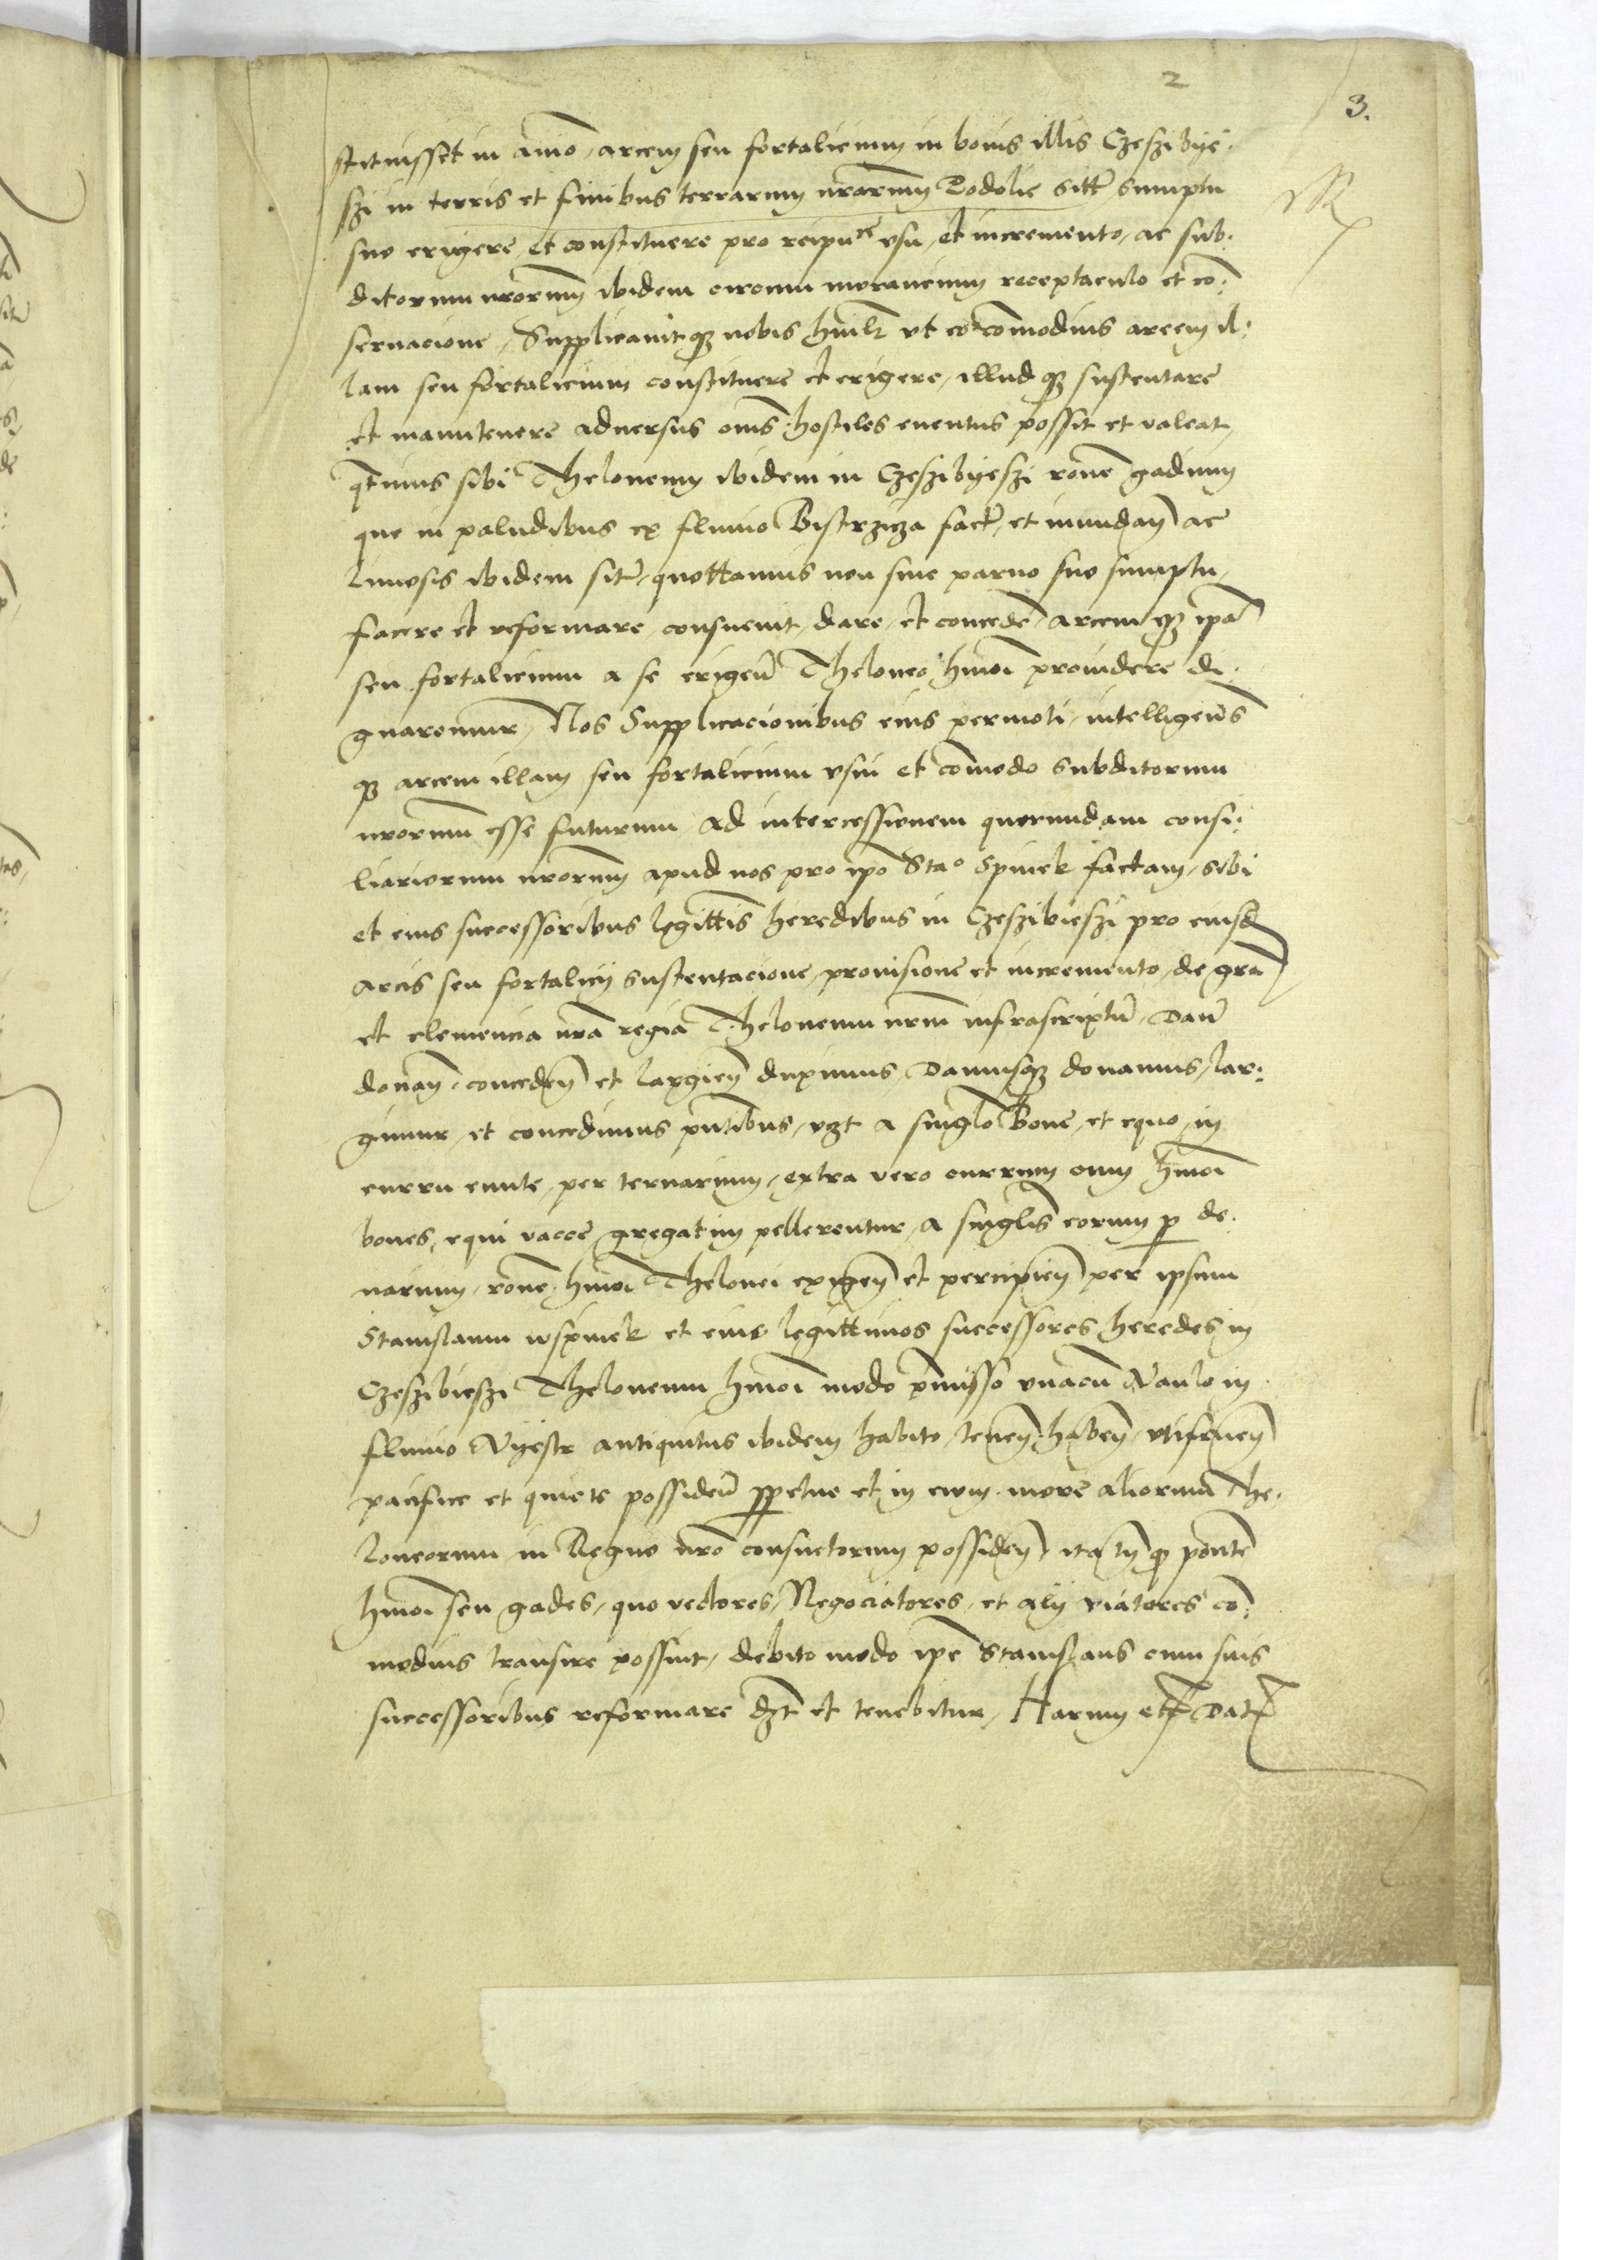 2
3.
stituisset in aīo, arcem seu fortalicium in bonis illis Czeszibye-
szi in terris et finibus terrarum nrarum Podolie sitt̄ sumptu
suo erigere, et constituere pro reipu͡ce usu, et incremento, ac sub-
ditorum nrorum ibidem circum morancium receptaculo et cō-
servacione, Supplicavitqз nobis humilr̄ ut eo cōmodius arcem il-
lam seu fortalicium constituere et erigere, illudqз sustentare
et manutenere adversus oms̄ hostiles eventus possit et valeat,
qt̄inus sibi Theloneum ibidem in Czeszibyeszi rōne gadium
que in paludibus ex fluvio Bistrzicza fact̄, et inundan̄ ac
limosis ibidem sit̄, quottannis non sine parvo suo sumptu,
facere et reformare, consuevit, dare, et concedē, arcemqз ipā
seu fortalicium a se erigen̄ Theloneo hmōi providere di-
gnaremur, Nos Supplicacionibus eius permoti, intelligen̄s
qз arcem illam seu fortalicium usui et cōmodo subditorum
nrorum esse futurum Ad intercessionem quorundam consi-
liariorum nrorum apud nos pro ipō Sta° Spinek factam, sibi
et eius successoribus legittīs heredibus in Czeszibieszi pro eiusd̄
arcis seu fortalicy sustentacione, provisione et incremento, de grā
et clemencia nrā regia Theloneum nrm̄ infrascriptū, Dan̄
donan̄, conceden̄ et largien̄ duximus, Damusqз donamus, lar-
gimur, et concedimus pn̄tibus, vзt a singlo Bove, et equo, in
curru eunte, per ternarium, extra vero currum cum hmōi
boves, equi vacce, gregatim pellerentur, a singlis eorum p̄ de-
narium, rōne hmōi Thelonei exigen̄ et percipien̄ per ipsum
Stanislaum wspinek et eius legittimos successores heredes in
Czeszibieszi Theloneum hmōi modo pm̄isso unacū Naulo in
fluvio Nyestr antiquitus ibidem habito, tenen̄, haben̄, utifruen̄
pacifice et quiete possiden̄ ppetue et in evum, more aliorum The-
loneorum in Regno nrō consuetorum possiden̄, ita tn̄ qз pontē
hmōi seu gades, quo vectores, Negociatores, et aly viatores cō-
modius transire possint, debito modo ipē Stanislaus cum suis
successoribus reformare dзt et tenebitur, Harum etc̄ Dat̄